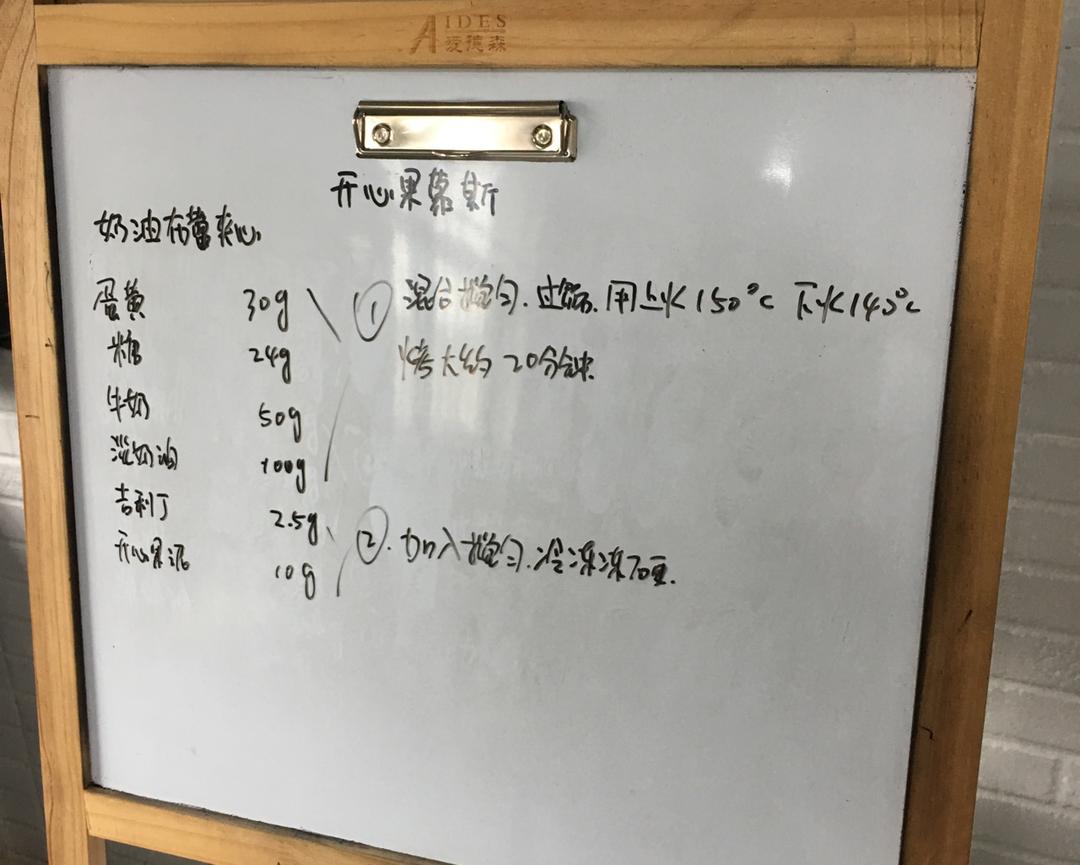 AIDES
爱德森
开心果慕斯
奶油布蕾夹心
蛋黄 30g
糖 24g
牛奶 50g
淡奶油 100g
吉利丁 2.5g
开心果泥 10g
① 混合搅匀.过筛.用上火150°C 下火140°C
烤大约20分钟.
②.加入搅匀.冷冻冻硬.